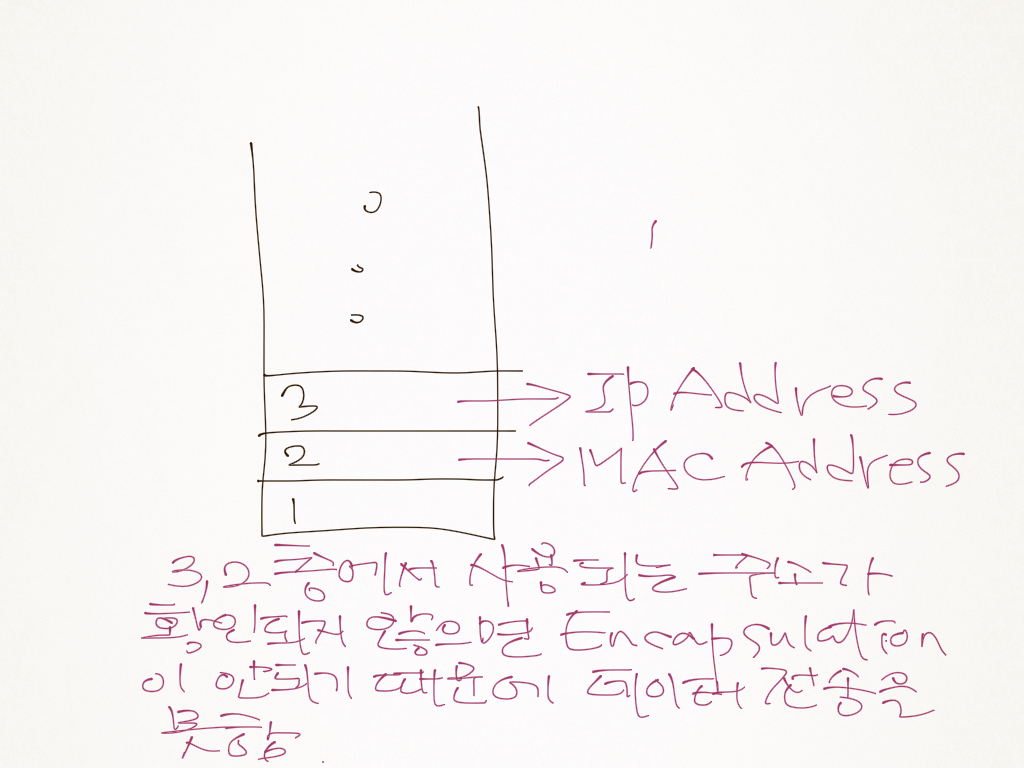 3
Ip Address
2
MAC Address
1
3,2 층에서 사용되는 주소가
확인되지 않으면 Encapsulation
이 안되기 때문에 데이터 전송을
못함.